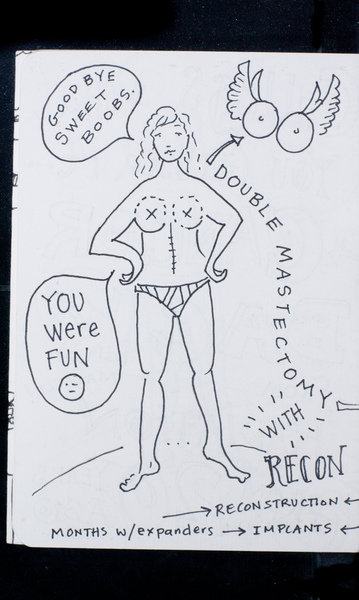 GOOD BYE
SWEET
BOOBS.
DOUBLE MASTECTOMY
YOU
were
FUN
WITH
RECON
→ RECONSTRUCTION ←
MONTHS w/expanders → IMPLANTS ←